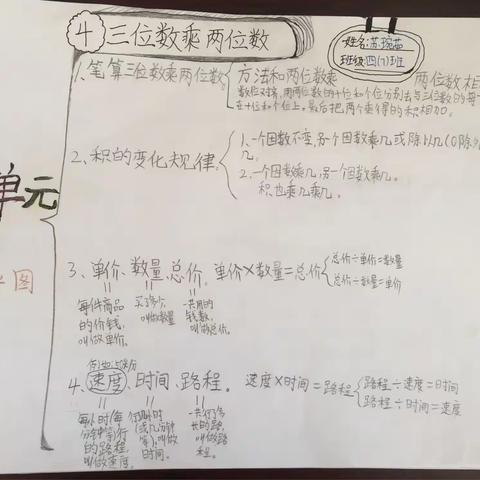 ④ 三位数乘两位数
姓名:苏琬茹
班级:四(7)班
单元
图
1、笔算三位数乘两位数。
方法和两位数乘 两位数相
数位对齐,用两位数的十位和个位分别去与三位数的每一
在十位和个位上。最后把两个乘得的积相加。
2、积的变化规律。
1、一个因数不变,另一个因数乘几或除以几(0除外
几。
2、一个因数乘几,另一个因数乘几。
积也乘几乘几。
3、单价、数量、总价。单价×数量=总价
总价÷单价=数量
总价÷数量=单价
每件商品
的价钱,
叫做单价。
买了多少,
叫做数量
一共用的
钱数,
叫做总价。
4、速度、时间、路程。 速度×时间=路程
路程÷速度=时间
路程÷时间=速度
每小时(每
分钟等)行
的路程,
叫做速度。
行了几小时
(或几分钟
等),叫做
时间。
一共行了多
长的路,
叫做路
程。